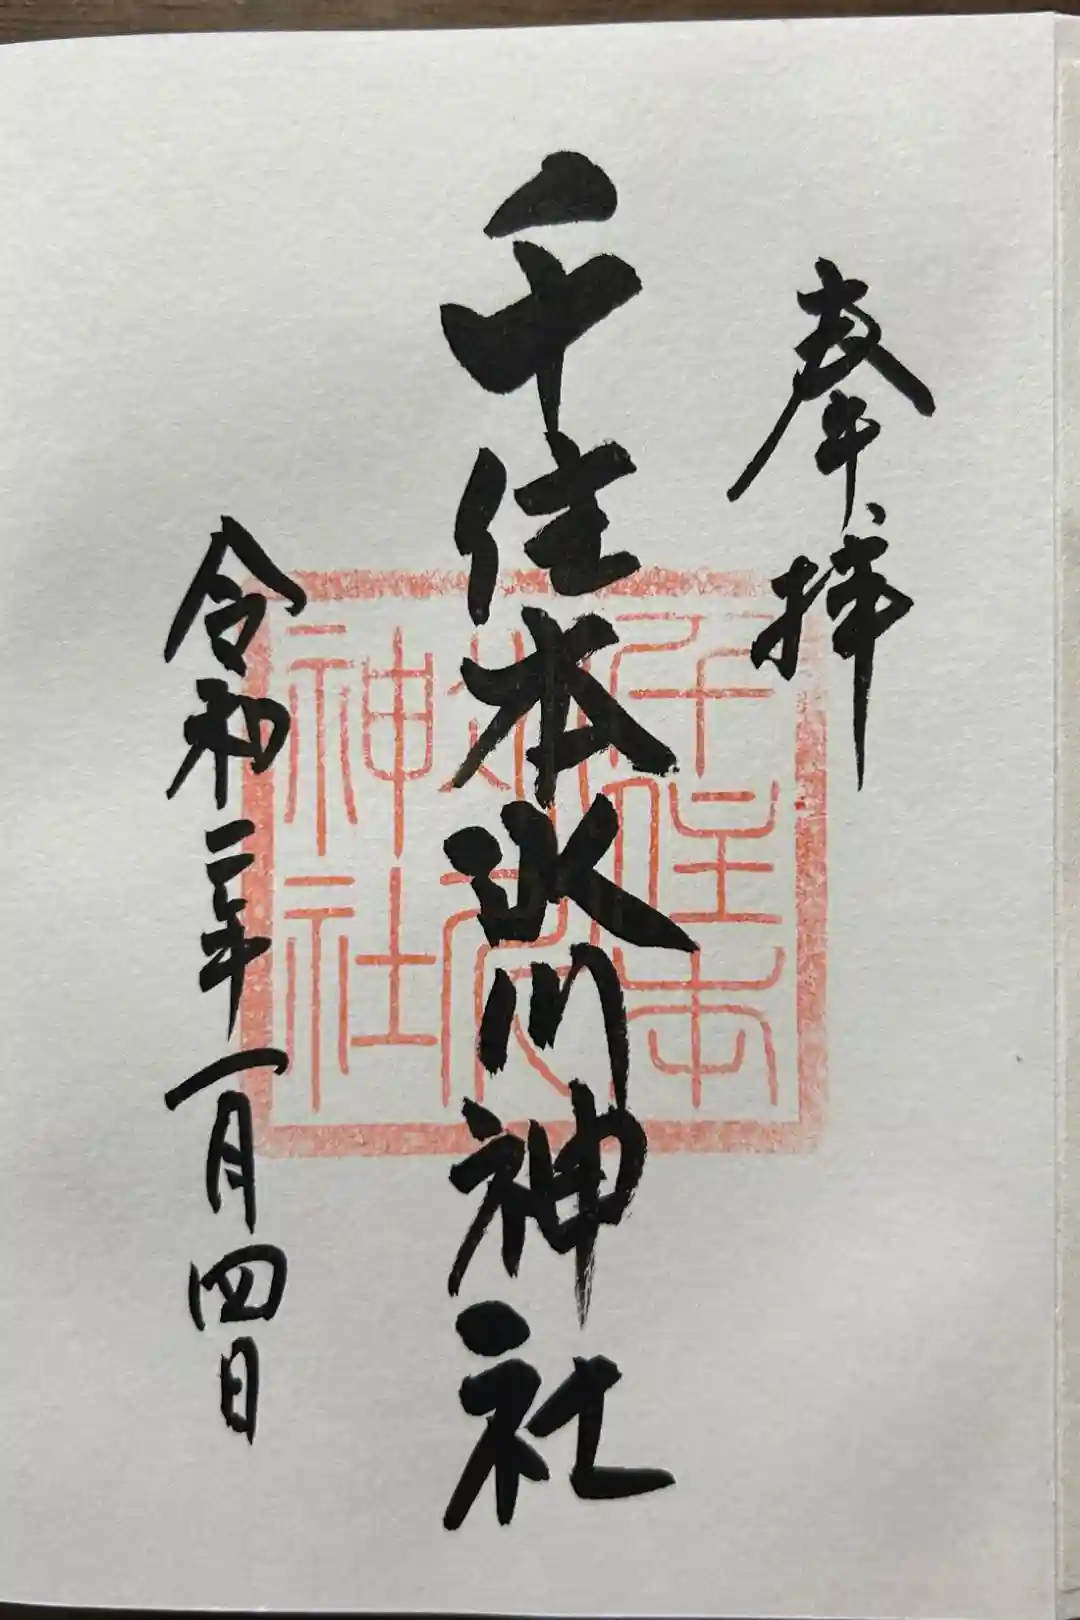 奉拝
千住本氷川神社
千住本氷川神社
令和二年一月四日